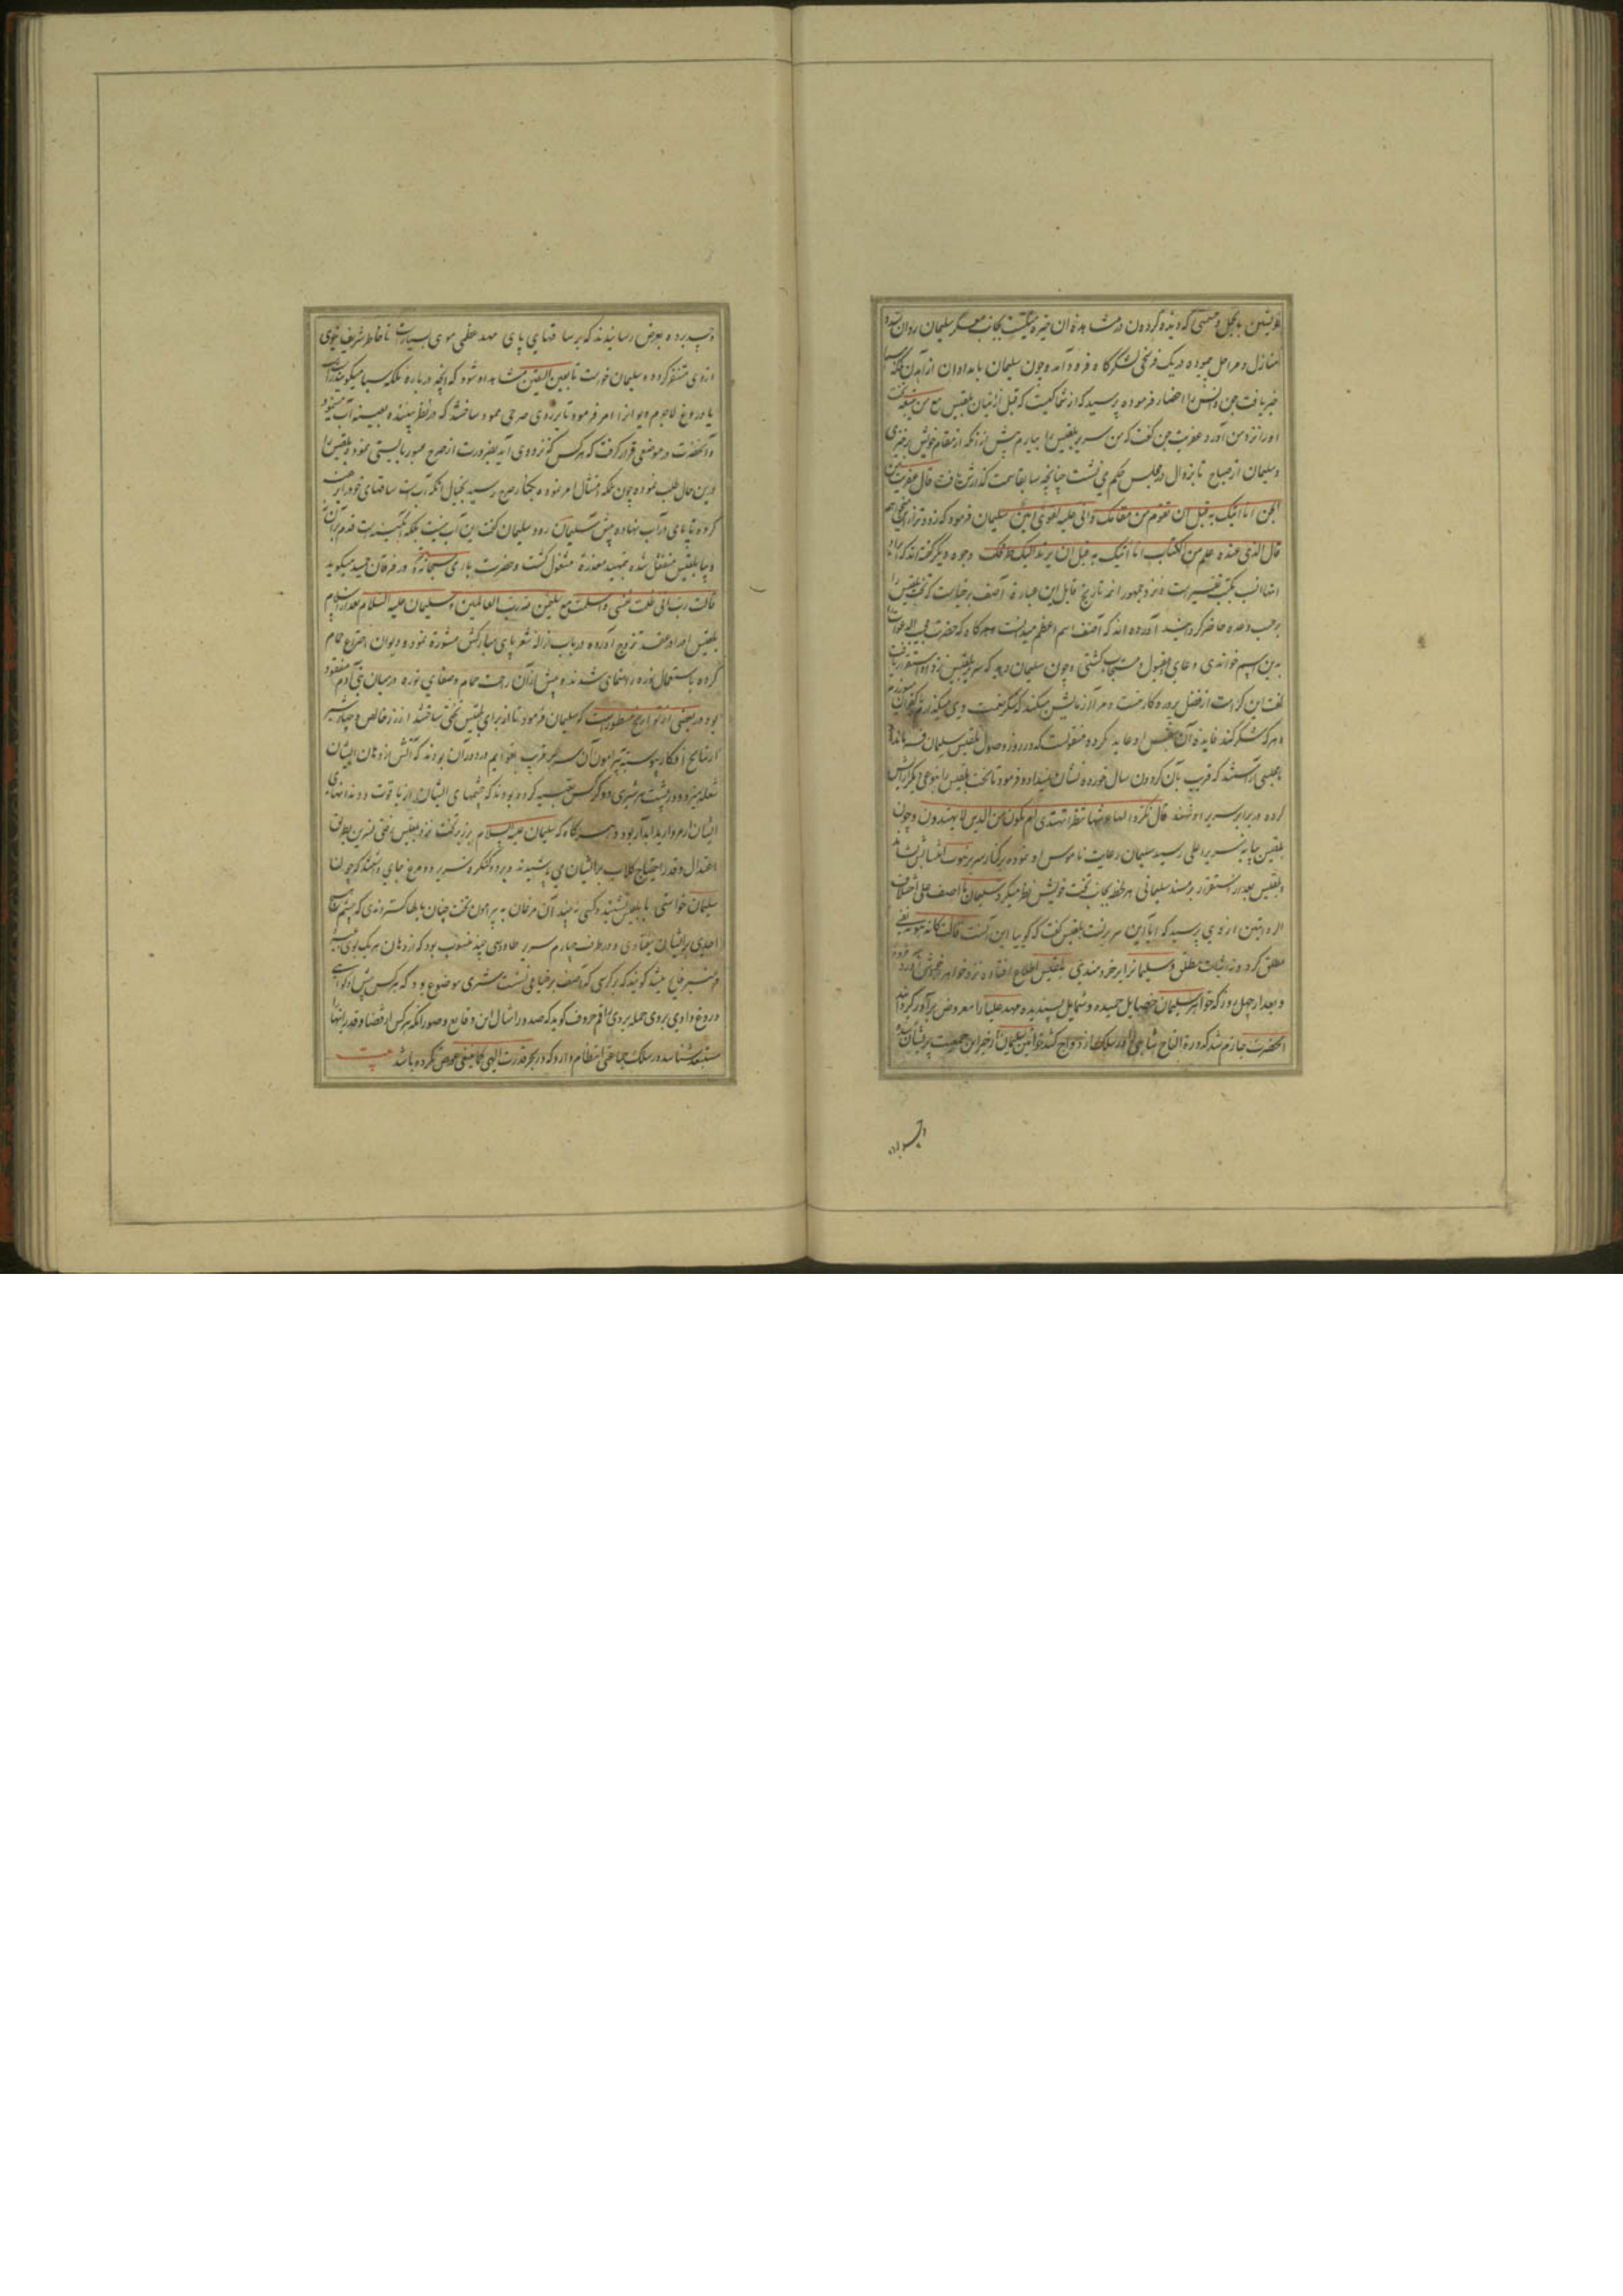 بلقیس باتجمل و حشمتی که دیده گردون در مشاهده آن خیره میگشت بجانب معسکر سلیمان روان شد و
منازل و مراحل پیموده در یک فرسخی لشکرگاه فرود آمد و چون سلیمان بامدادان از آمدن ملکه سبا
خبر یافت جن و انس را احضار فرموده پرسید که از شما کیست که قبل از اتیان بلقیس مع من تبعه تخت
او را نزد من آورد عفریت جن گفت که من سریر بلقیس را بیارم پیش از آنکه از مقام خویش برخیزی
و سلیمان از صباح تا بزوال در مجلس حکم می نشست چنانچه سابقا سمت گذارش یافت قال عفریت من
الجن انا آتیک به قبل ان تقوم من مقامک و انی علیه لقوی امین سلیمان فرمود که زودتر ازین میخواهم
قال الذی عنده علم من الکتاب انا آتیک به قبل ان یرتد الیک طرفک وجوه دیگر گفته اند که ایراد
آنها انسب بکتب تفسیرست و نزد جمهور ائمه تاریخ قایل این عبارة آصف برخیاست که تخت بلقیس را
برحسب وعده حاضر گردانید آورده اند که آصف اسم اعظم میدانست و هرگاه که حضرت مجیب الدعوات
بدین اسم خواندی دعای او قبول و مستجاب گشتی و چون سلیمان دید که سریر بلقیس نزد او استقرار یافت
گفت این کرامت از فضل پروردگار منست و مرا آزمایش میکند که شکر نعمت وی میگذارم یا کفران می‌ورزم
و هر که شکر کند فایده آن بنفس او عاید گردد و منقولست که در روز وصول بلقیس سلیمان فرمود تا
مجلسی آراستند که قریب بآن گردون سال خورده نشان نمیداد و فرمود تا تخت بلقیس را بنوعی دیگر آرایش
کرده در برابر سریر او نهند قال نکروا لها عرشها ننظر اتهتدی ام تکون من الذین لا یهتدون و چون
بلقیس بپایه سریر اعلی رسید سلیمان رعایت ناموس او نموده بر کنار سریر نبوت انتسابش نشاند
و بلقیس بعد از استقرار بر مسند سلیمانی هر لحظه بجانب تخت خویش نظر میکرد سلیمان یا آصف علی اختلاف
الروایتین از وی پرسید که آیا این سریر تست بلقیس گفت که گوییا این آنست قالت کانه هو نه نفی
مطلق کرد و نه اثبات مطلق و سلیمان را بر خردمندی بلقیس اطلاع افتاده نزد خواهر خودش فرود آورد
و بعد از چهل روز که خواهر سلیمان خصایل حمیده و شمایل پسندیده مهد علیا را معروض برادر گردانید
آنحضرت جازم شد که درة التاج شاهی را در سلک ازدواج کشد خواتین سلیمان از خبر این جمعیت پریشان شده
و حسد برده بعرض رسانیدند که بر ساقهای پای مهد عظمی موی بسیارست تا خاطر شریف نبوی
ازوی متنفر گردد و سلیمان خواست تا بعین الیقین مشاهده شود که آنچه درباره ملکه سبا میگویند راست
یا دروغ لاجرم دیوانرا امر فرمود تا بر روی صرحی ممرد ساختند که در نظر بیننده بعینه آب مینمود
و آنحضرت در موضعی قرار گرفت که هر کس که نزد وی آید بضرورت از صرح عبور بایستی نمود و بلقیس را
درین حال طلب نموده چون ملکه امتثال امر نموده بکنار صرح رسید بخیال آنکه آبست ساقهای خود را برهنه
کرده تا پای در آب نهاده پیش سلیمان رود سلیمان گفت این آب نیست بلکه آبگینه است قدم بر آن
نه بلقیس منفعل شده بتمهید معذرة مشغول گشت و حضرت باری سبحانه در فرقان مجید میگوید
قالت رب انی ظلمت نفسی و اسلمت مع سلیمن لله رب العالمین و سلیمان علیه السلام بعد از اسلام
بلقیس او را در عقد تزویج آورده در باب ازاله شعر پای مبارکش مشورة نمود و دیوان اختراع حمام
کرده باستعمال نوره رهنمای شدند و پیش از آن راحت حمام و صفای نوره در میان بنی آدم مفقود
بود در بعضی از تواریخ مسطورست که سلیمان فرمود تا از برای بلقیس تختی ساختند از زر خالص و چهار شیر
از نتایج افکار پیوسته پیرامون آن سریر قریب بقوایم در دوران بودند که آتش از دهان ایشان
شعله میزد و در پشت هر شیری دو کرکس تعبیه کرده بودند که چشمهای ایشان از یاقوت و دندانهای
ایشان از مروارید آبدار بود و هرگاه که سلیمان علیه السلام بر زیر تخت نزد بلقیس رفتی نسرین بطریق
اعتدال و قدر احتیاج گلاب بر ایشان می پاشیدند و بر دو کنگره سریر دو مرغ جای داشتند که چون
سلیمان خواستی با بلقیس نشیند و کسی نه بیند آن مرغان به پیرامون تخت چنان بالها گستردندی که چشم هیچ
احدی بر ایشان نیفتادی و در طرف چهارم سریر طاوسی چند منصوب بود که از دهان هر یک بوی مشک
و عنبر فایح میشد گویند که بر کرسی که آصف برخیا می نشست مشتری موضوع بود که هرکس پیش او گواهی
دروغ دادی بر وی حمله بردی راقم حروف گوید که صدور امثال این وقایع و صور آنکه هرکس از قضا و قدر الهی
مستبعد شناسد در سلک جماعتی انتظام دارد که در بحر قدرت الهی کما ینبغی خوض نکرده باشد